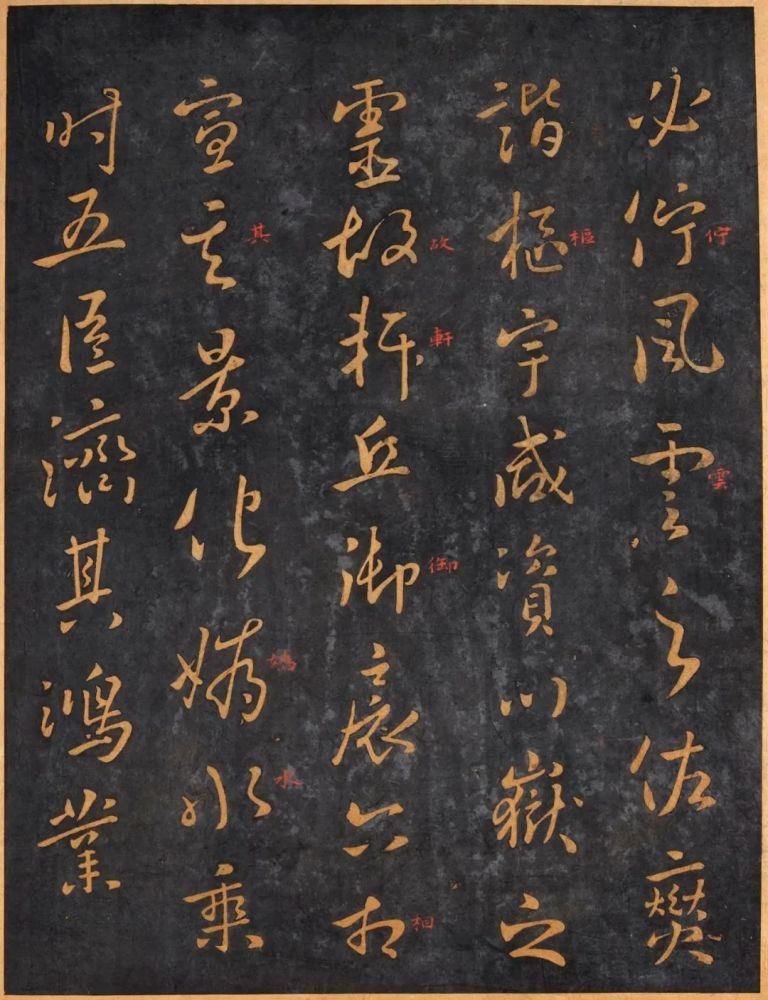 必佇風雲之佐燮
佇雲
諧樞宇咸資川嶽之
樞
靈故軒丘御扆六相
故軒御相
宣其景化媯水乘
其媯水
時五臣濟其鴻業